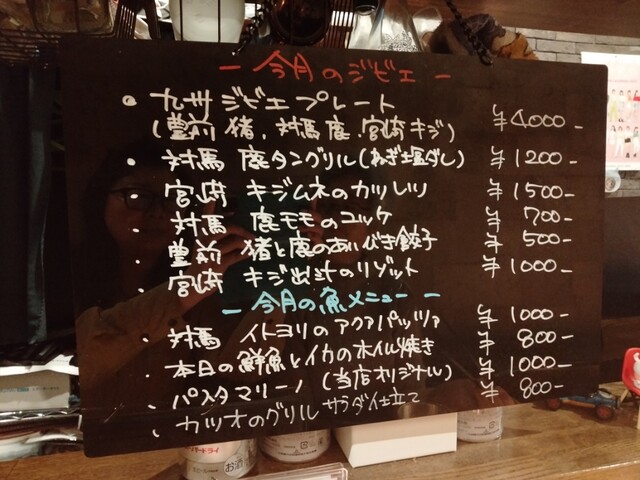 ー 今月のジビエ ー
・九州ジビエプレート
(豊前 猪、対馬 鹿、宮崎キジ) ¥4000-
・対馬 鹿タングリル(ねぎ塩ダレ) ¥1200-
・宮崎 キジムネのカツレツ ¥1500-
・対馬 鹿モモのユッケ ¥700-
・豊前 猪と鹿のあいびき餃子 ¥500-
・宮崎 キジ出汁のリゾット ¥1000-
ー 今月の魚メニュー ー
・対馬 イトヨリのアクアパッツァ ¥1000-
・本日の鮮魚とイカのホイル焼き ¥800-
・パスタマリーノ (当店オリジナル) ¥1000-
・カツオのグリル サラダ仕立て ¥800-
お酒